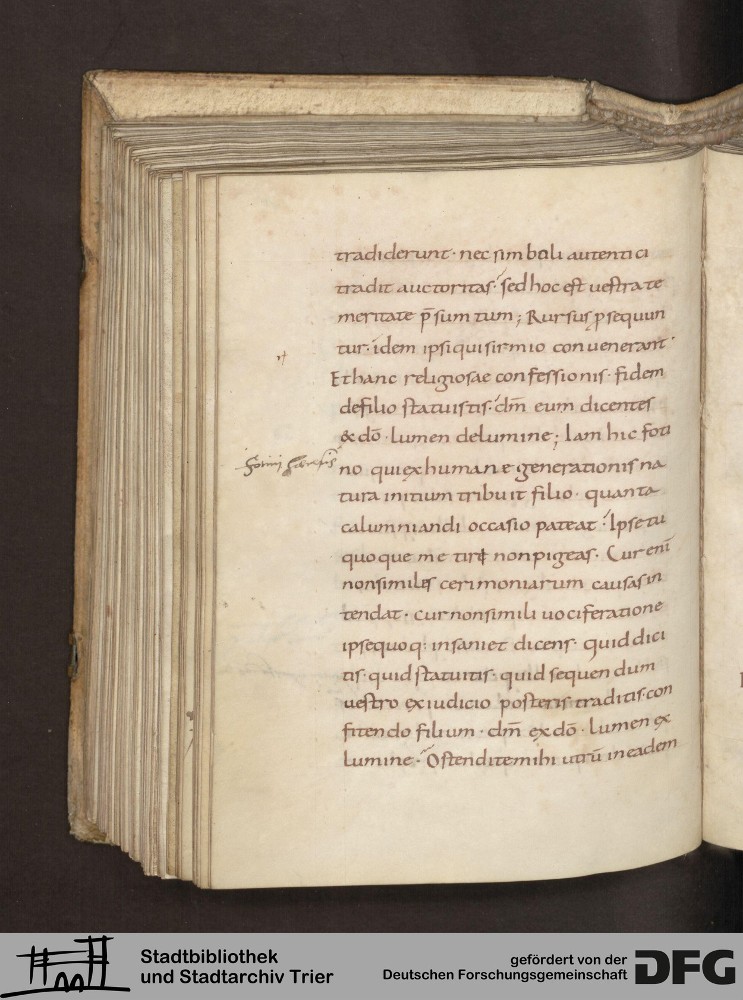 tradiderunt· nec simboli autentici
tradit auctoritas· sed hoc est uestra te
meritate p̄sumtum; Rursus psequun
tur· idem ipsi qui sirmio conuenerant·
Et hanc religiosae confessionis· fidem
defilio statuistis· dm̄ eum dicentes
& dō· lumen delumine; Iam hic foti
no qui ex humane generationis na
tura initium tribuit filio· quanta
calumniandi occasio pateat· Ipse tu
quoque me tire non pigeas· Cur enī
non similes cerimoniarum causas in
tendat· cur non simili uociferatione
ipse quoq: insaniet dicens· quid dici
tis· quid statuitis· quid sequendum
uestro ex iudicio posteris traditis· con
fitendo filium· dm̄ ex dō· lumen ex
lumine· Ostendite mihi utrū in eadem
Stadtbibliothek
und Stadtarchiv Trier
gefördert von der
Deutschen Forschungsgemeinschaft
DFG